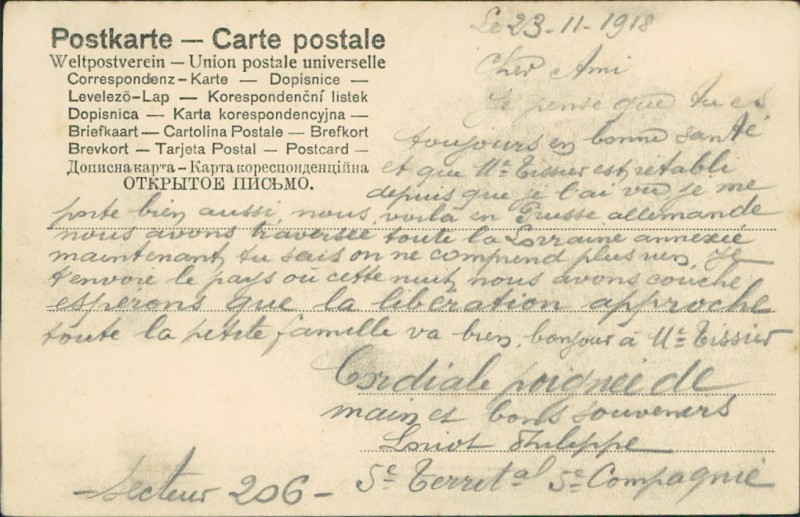 Postkarte — Carte postale
Weltpostverein — Union postale universelle
Correspondenz-Karte — Dopisnice —
Levelező-Lap — Korespondenční listek
Dopisnica — Karta korespondencyjna —
Briefkaart — Cartolina Postale — Brefkort
Brevkort — Tarjeta Postal — Postcard —
Дописна карта — Карта кореспонденційна
ОТКРЫТОЕ ПИСЬМО.
Le 23-11-1918
Cher Ami
Je pense que tu es
toujours en bonne santé
et que Mr Tissier est rétabli
depuis que je l'ai vu je me
porte bien aussi, nous voilà en Prusse allemande
nous avons traversée toute la Lorraine annexié
maintenant tu sais on ne comprend plus rien, Je
t'envoie le pays où cette nuit nous avons couché
esperons que la libération approche
toute la petite famille va bien, bonjour à Mr Tissier
Cordiale poignée de
main et bons souvenirs
Philippe
5e Territal 5e Compagnie
Secteur 206 -